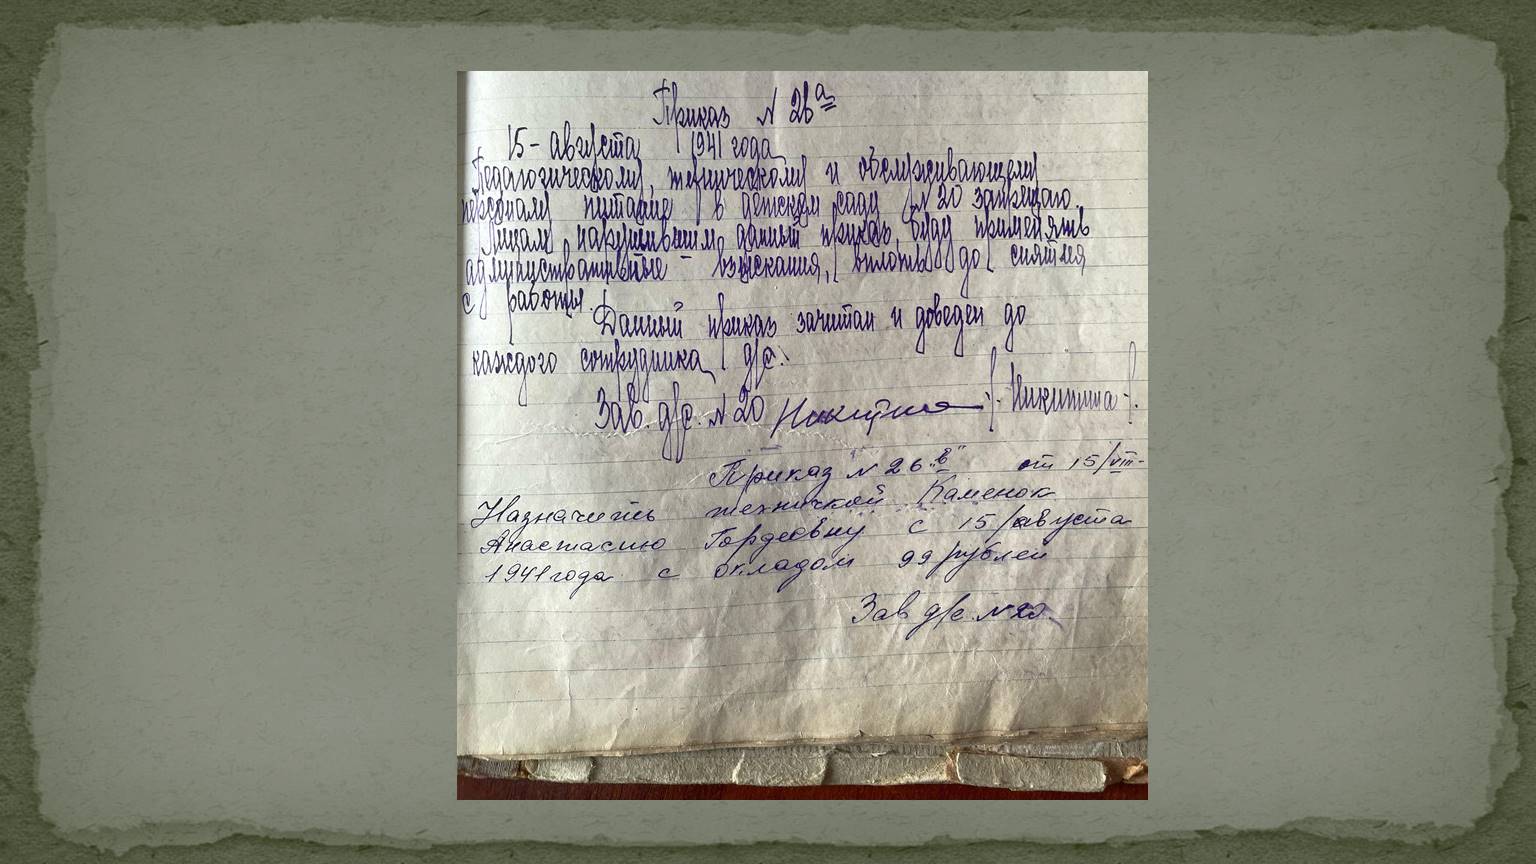 Приказ N 26а
15 - августа 1941 года
Педагогическому, техническому и обслуживающему
персоналу питание в детском саду N 20 запрещаю.
Лицам нарушившим данный приказ, буду применять
административные взыскания, вплоть до снятия
с работы.
Данный приказ зачитан и доведен до
каждого сотрудника д/с.
Зав. д/с. N 20 Никитина /-Никитина-/.
Приказ N 26 "в" от 15/VIII-
Назначить техничкой Каменок
Анастасию Гордеевну с 15/августа
1941 года с окладом 99 рублей
Зав д/с. N 20.